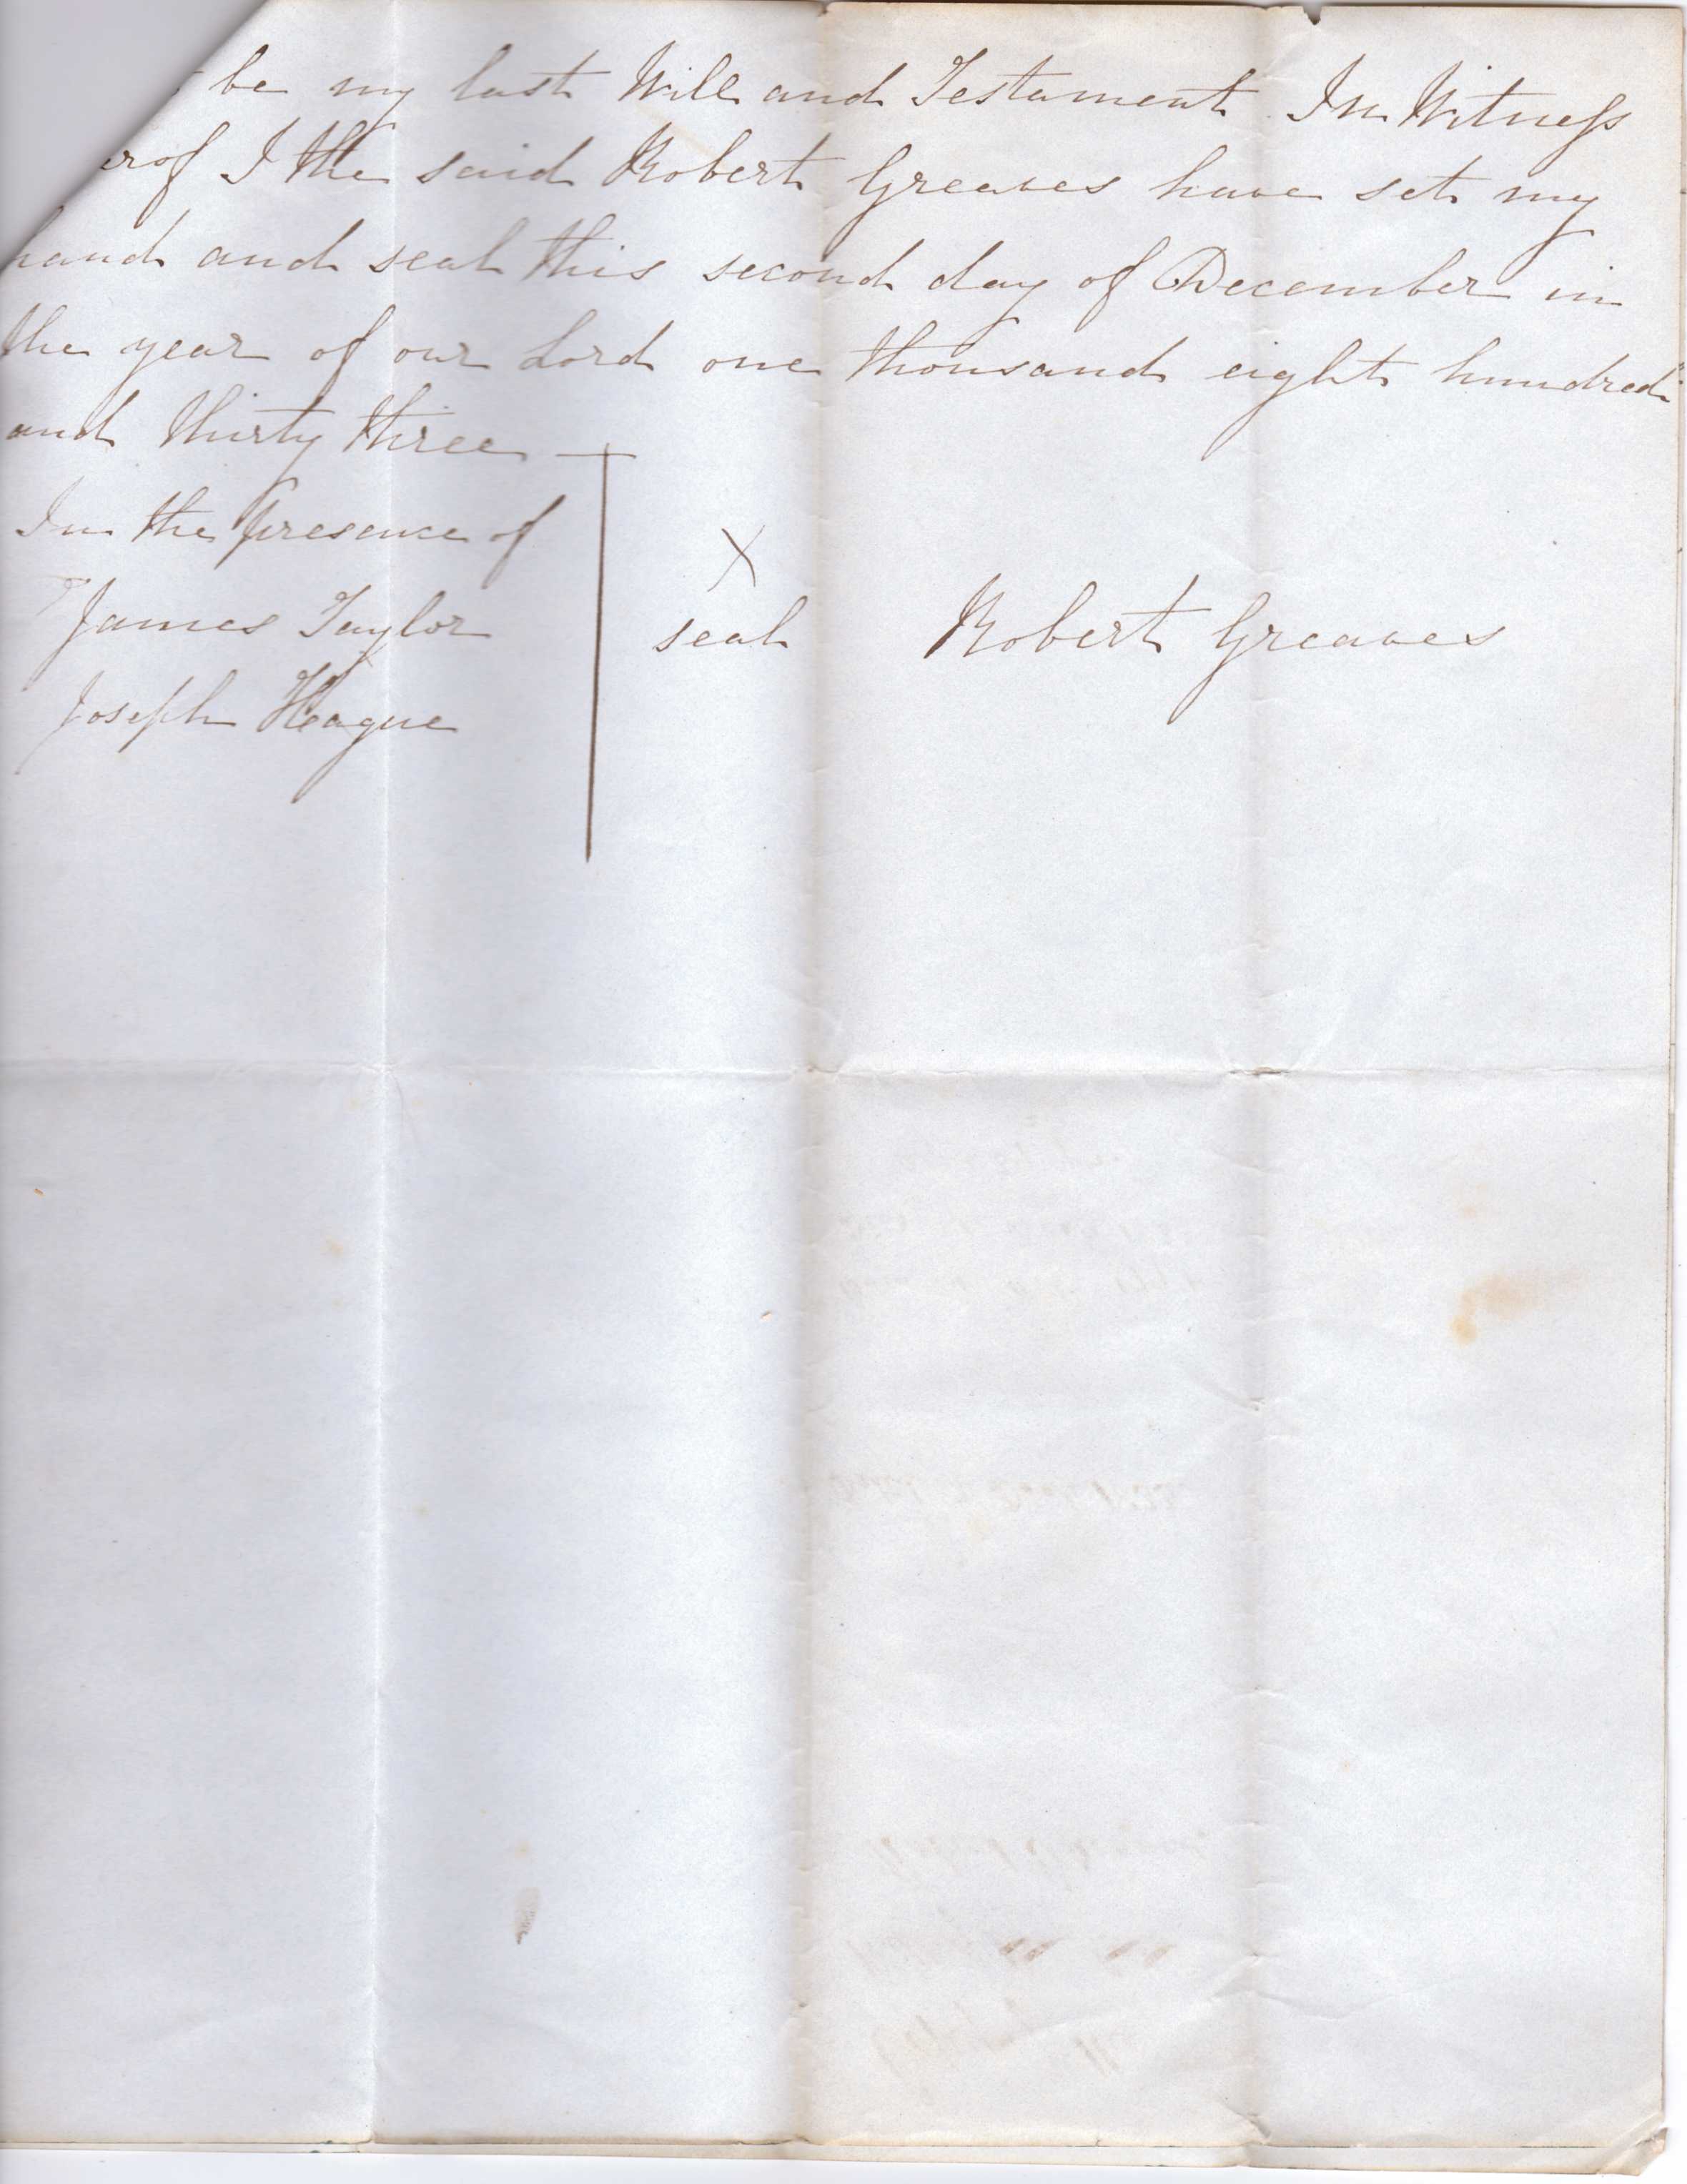 be my last Will and Testament In Witness
erof I the said Robert Greaves have set my
hand and seal this second day of December in
the year of our Lord one thousand eight hundred
and thirty three
In the presence of
X
James Taylor seal Robert Greaves
Joseph Heague